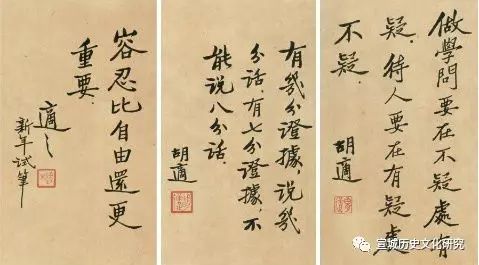 容忍比自由還更
重要.
適之
新年試筆
有幾分證據,說幾
分話.有七分證據,不
能說八分話.
胡適
做學問要在不疑處有
疑.待人要在有疑處
不疑.
胡適
宣城历史文化研究